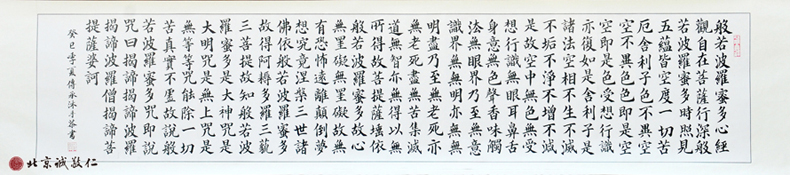 般若波羅蜜多心經
觀自在菩薩行深般
若波羅蜜多時照見
五蘊皆空度一切苦
厄舍利子色不異空
空不異色色即是空
空即是色受想行識
亦復如是舍利子是
諸法空相不生不滅
不垢不淨不增不減
是故空中無色無受
想行識無眼耳鼻舌
身意無色聲香味觸
法無眼界乃至無意
識界無無明亦無無
明盡乃至無老死亦
無老死盡無苦集滅
道無智亦無得以無
所得故菩提薩埵依
般若波羅蜜多故心
無罣礙無罣礙故無
有恐怖遠離顛倒夢
想究竟涅槃三世諸
佛依般若波羅蜜多
故得阿耨多羅三藐
三菩提故知般若波
羅蜜多是大神咒是
大明咒是無上咒是
無等等咒能除一切
苦真實不虛故說般
若波羅蜜多咒即說
咒曰揭諦揭諦波羅
揭諦波羅僧揭諦菩
提薩婆訶
癸巳季夏傳承沐手恭書
北京诚敬仁